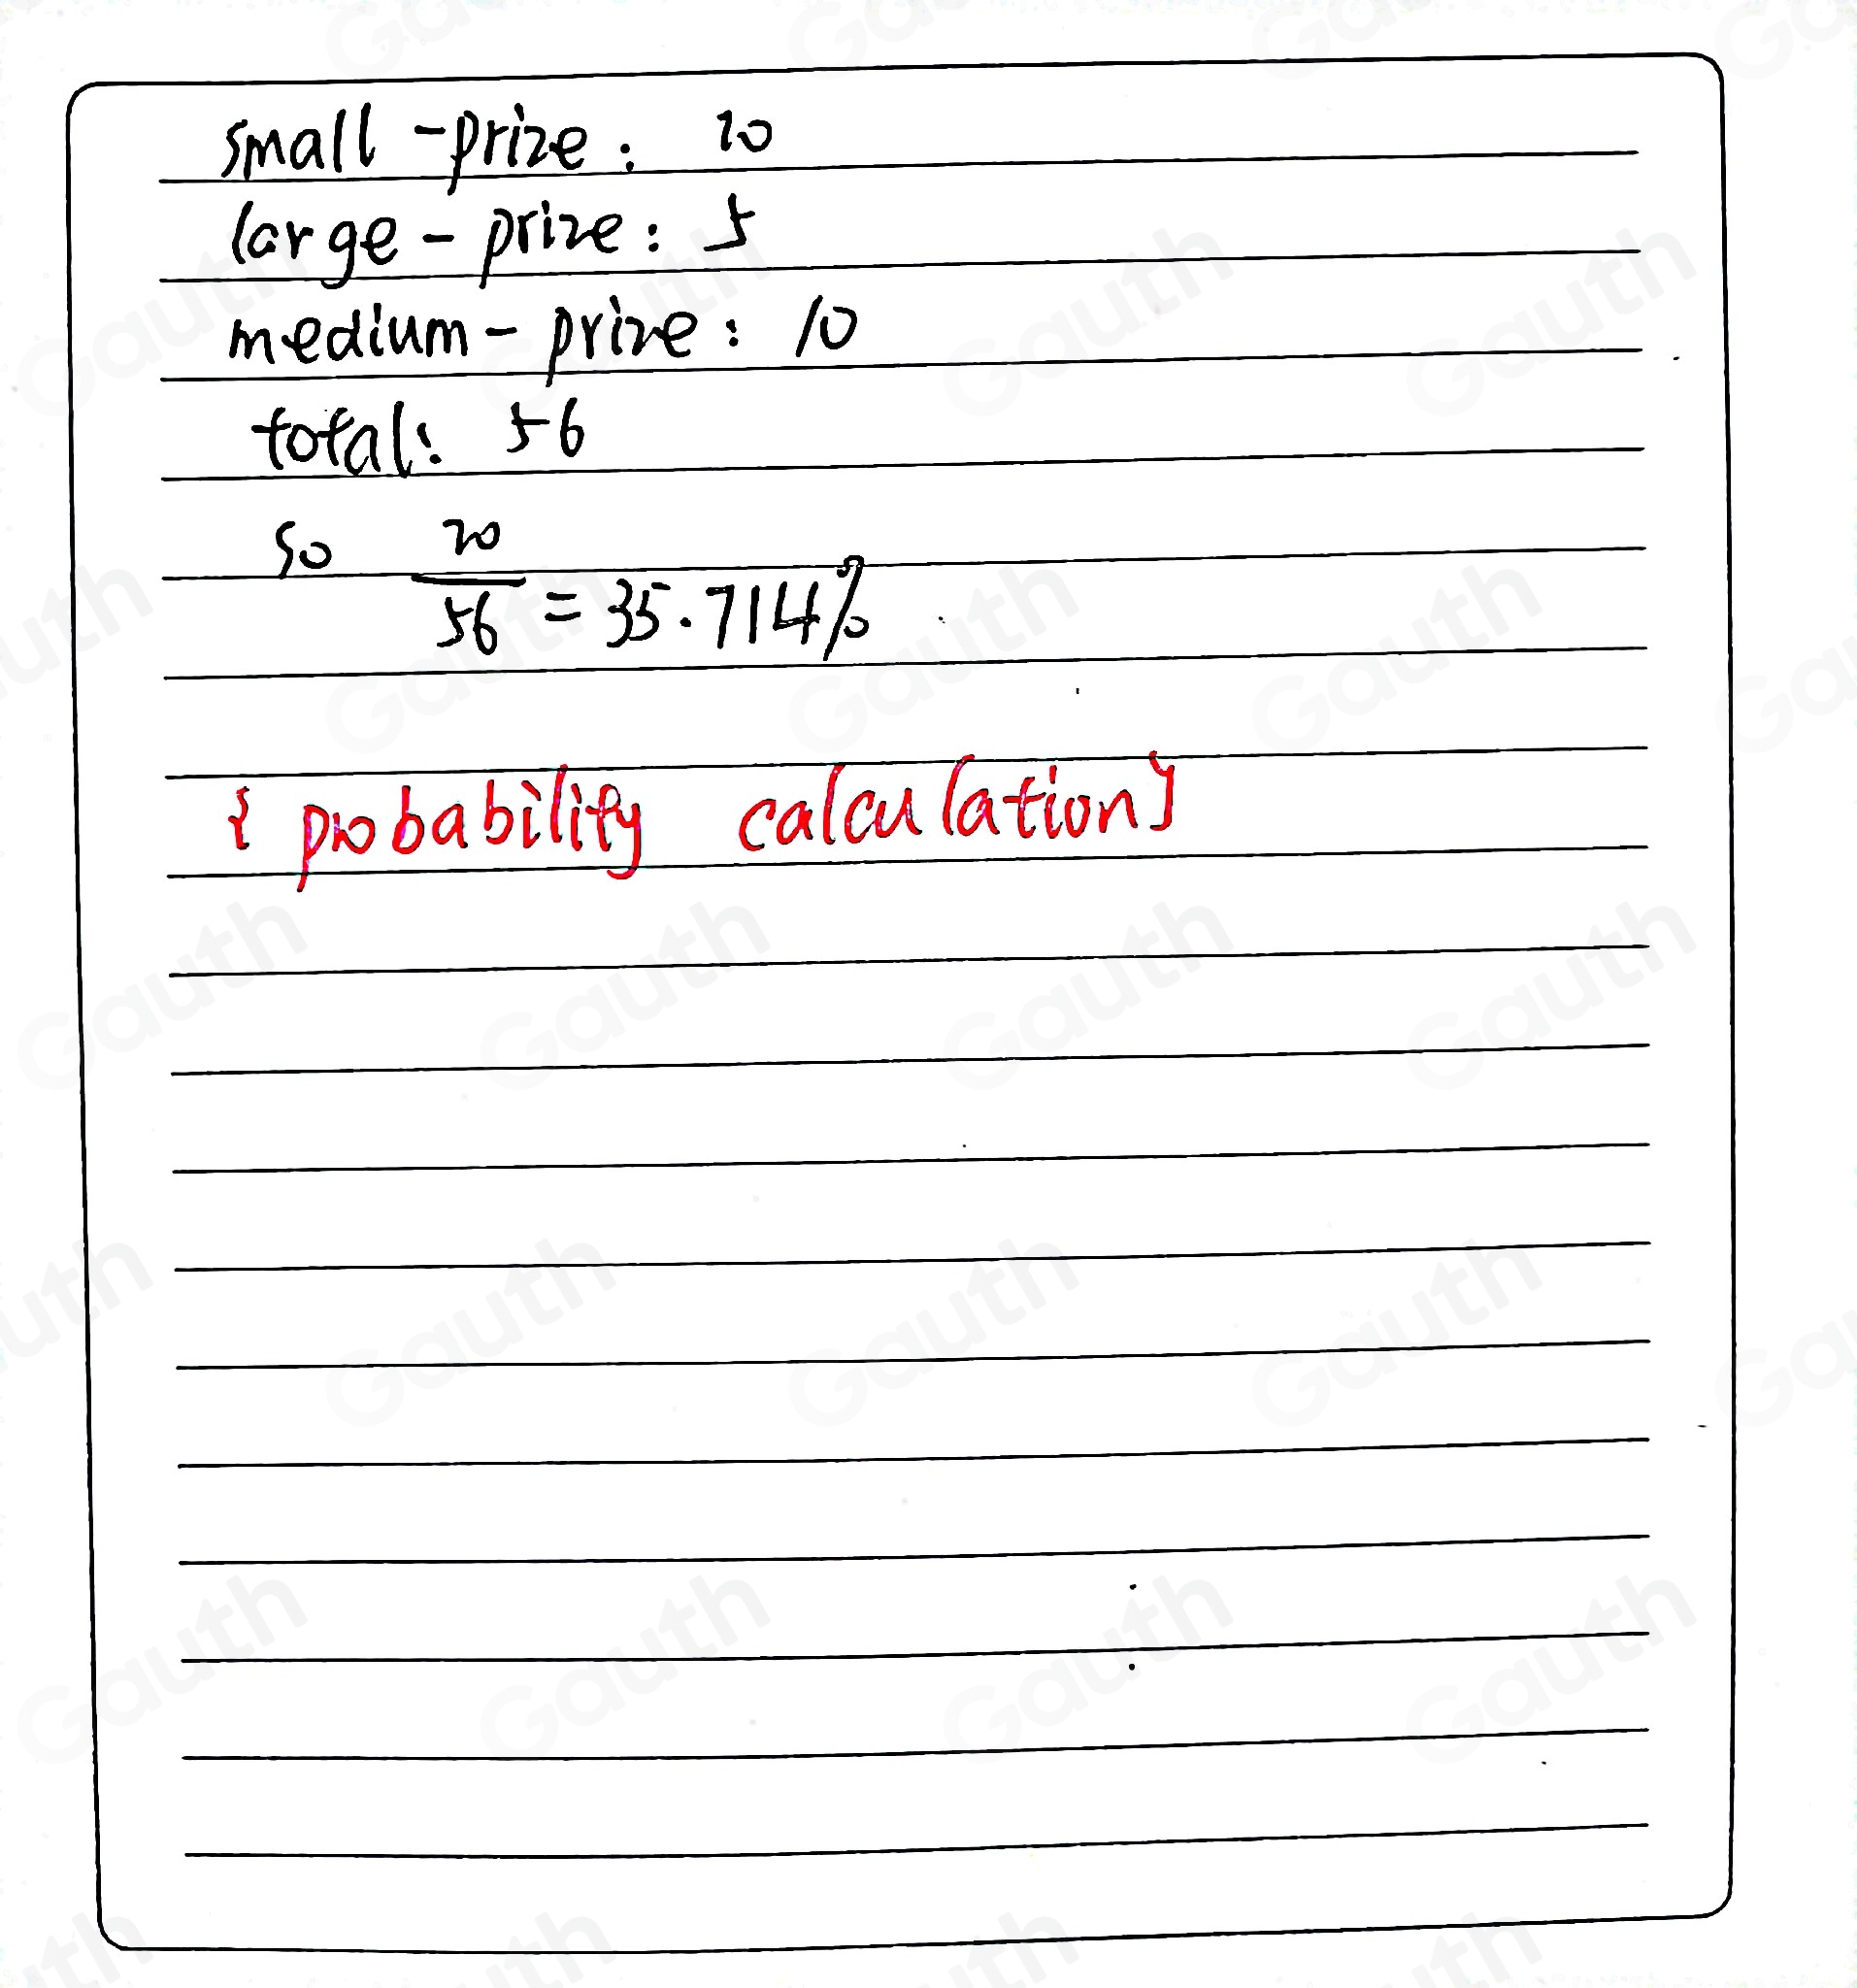 small-prize: 20
large-prize: 5
medium-prize: 10
total: 56
so 20/56 = 35.714%
{probability calculation}
Gauth